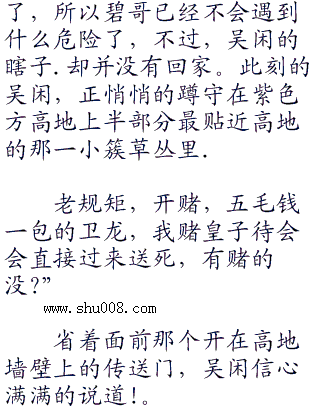 了，所以碧哥已经不会遇到
什么危险了，不过，吴闲的
瞎子.却并没有回家。此刻的
吴闲，正悄悄的蹲守在紫色
方高地上半部分最贴近高地
的那一小簇草丛里.
老规矩，开赌，五毛钱
一包的卫龙，我赌皇子待会
会直接过来送死，有赌的
没?”
www.shu008.com
省着面前那个开在高地
墙壁上的传送门，吴闲信心
满满的说道!。